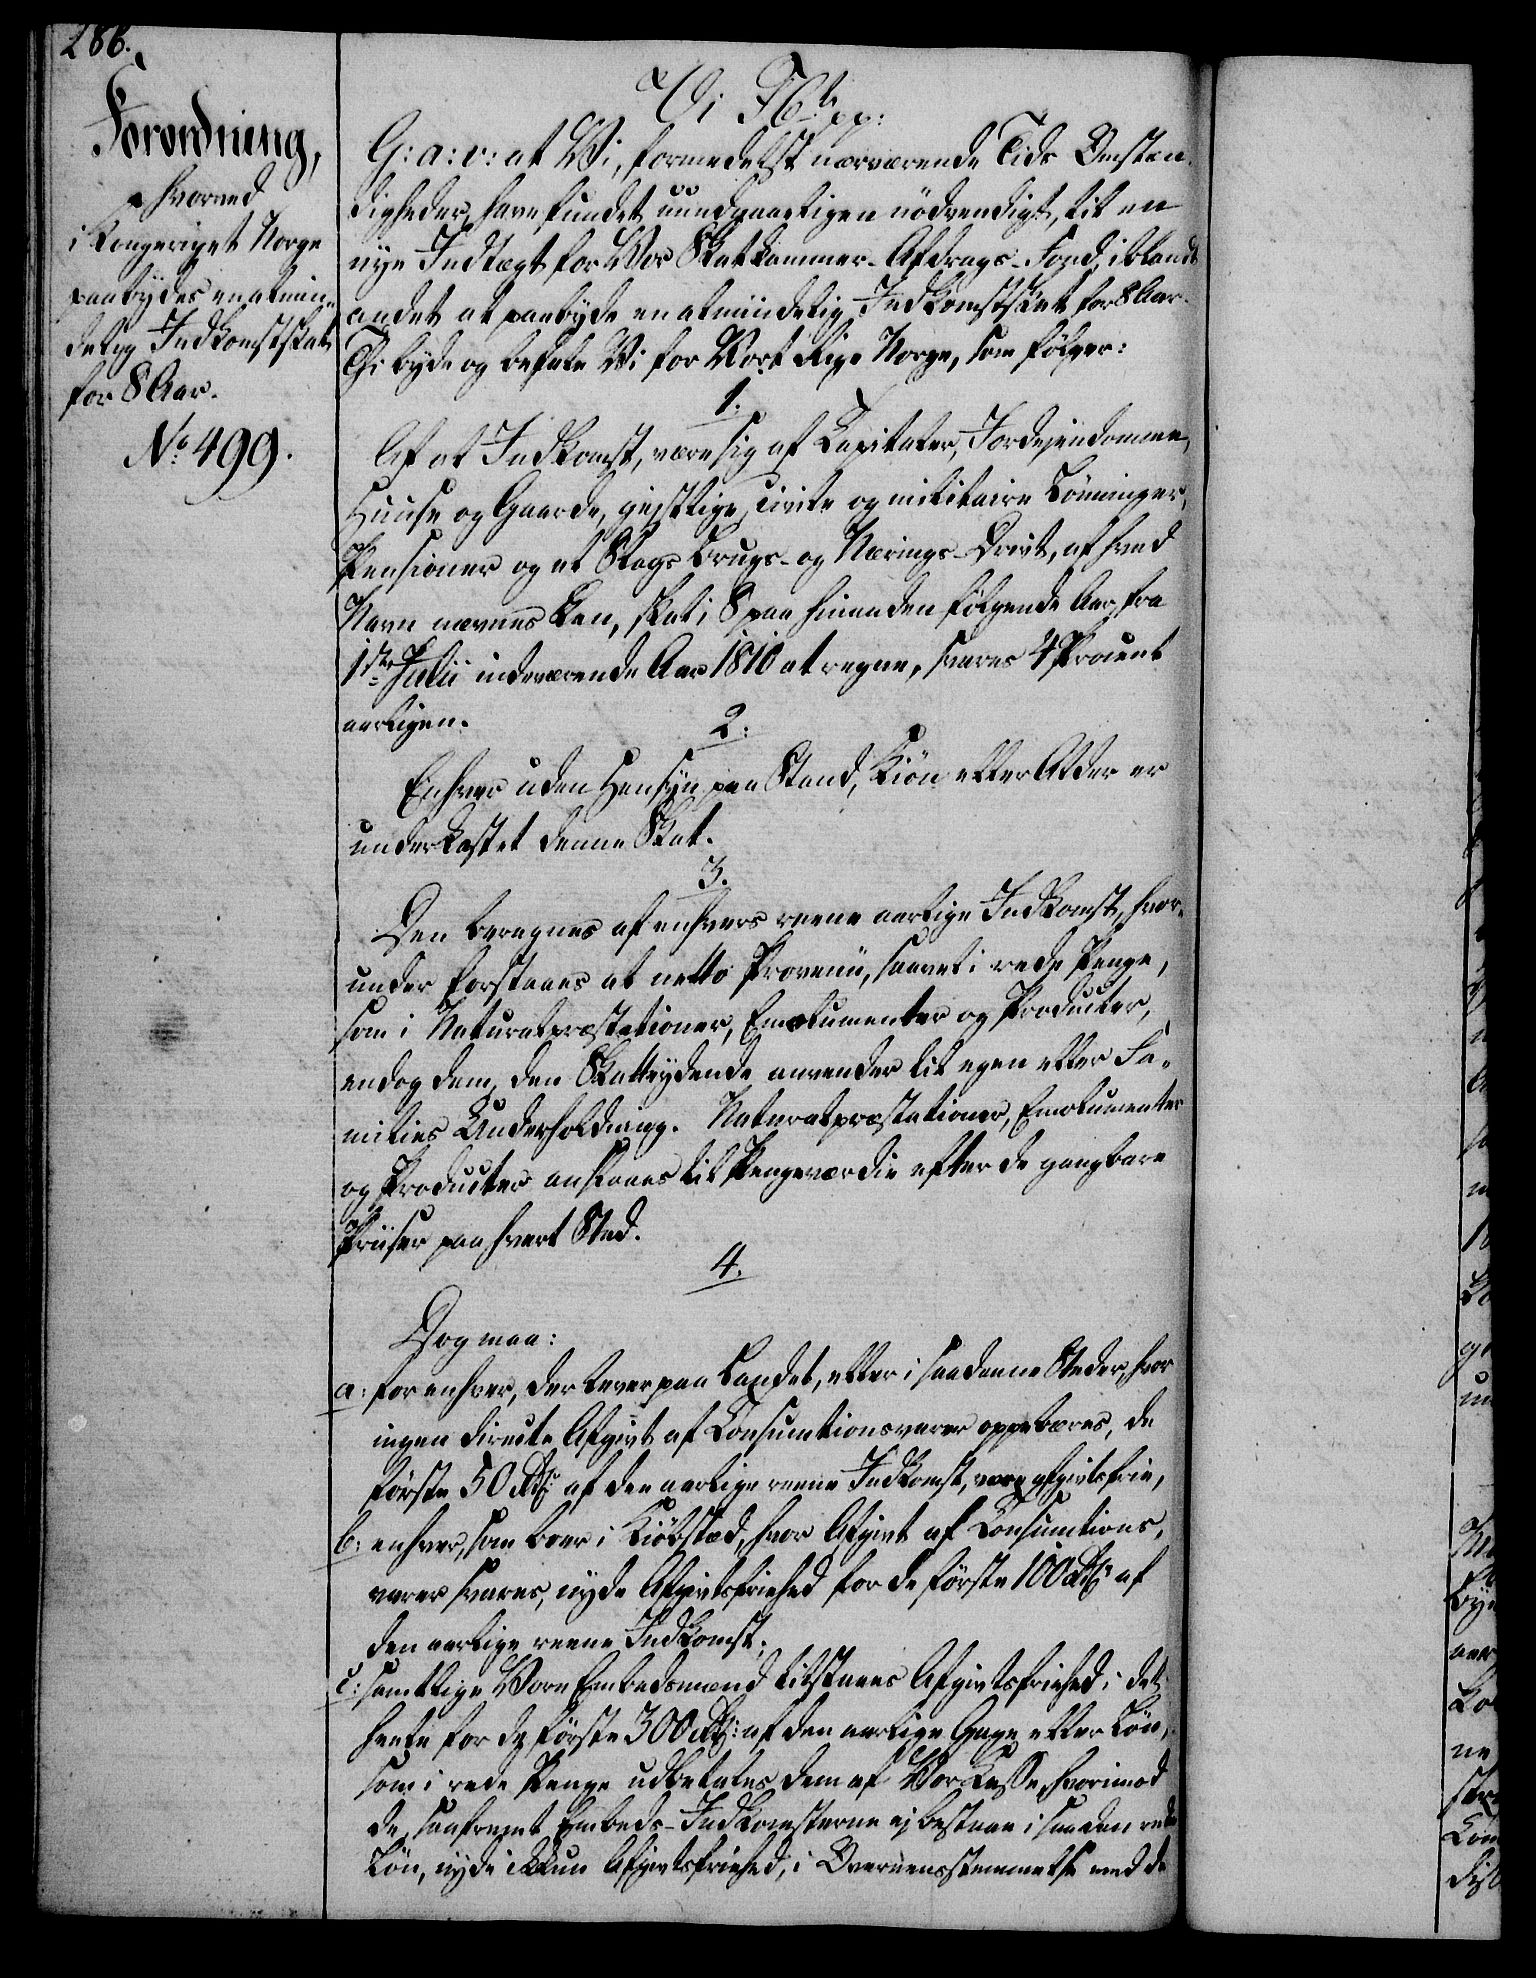 286.
Forordning,
hvorved
i Kongeriget Norge
paabydes en almin-
delig Indkomstskat
for 8 Aar.
No. 499.
Vi F6te pp:
G: a: v: at Vi, formedelst nærværende Tids Omstæn-
digheder, have fundet uundgaaeligen nödvendigt, til en
nye Indtægt for Vor Skatkammer-Afdrags-Fond, iblandt
andet at paabyde en almindelig Indkomstskat for 8 Aar.
Thi byde og befale Vi for Vort Rige Norge, som fölger:
1.
Af al Indkomst, være sig af Capitaler, Jordejendomme,
Huuse og Gaarde, gejstlige, civile og militaire Lönninger,
Pensioner og al Slags Brugs- og Nærings-Drivt, af hvad
Navn nævnes kan, skal i 8 paa hinanden fölgende Aar, fra
1ste Julii indeværende Aar 1810 at regne, svares 4 Procent
aarligen.
2.
Enhver uden Hensyn paa Stand, Kiön eller Alder er
underkastet denne Skat.
3.
Den beregnes af enhvers reene aarlige Indkomst, hvor-
under forstaaes al netto Provenü, saavel i rede Penge,
som i Naturalpræstationer, Emolumenter og Producter,
endog dem, den Skatteydende anvender til egen eller Fa-
milies Underholdning. Naturalpræstationer, Emolumenter
og Producter anslaaes til Pengeværdie efter de gangbare
Priiser paa hvert Sted.
4.
Dog maa:
a: for enhver, der lever paa Landet, eller i saadanne Steder, hvor
ingen directe Afgivt af Consumtionsvarer oppebæres, de
förste 50 Rd. af den aarlige reene Indkomst, være afgivtsfrie,
b: enhver, som boer i Kiöbstæd, hvor Afgivt af Consumtions-
varer svares, nyde Afgivtsfriehed for de förste 100 Rd. af
den aarlige reene Indkomst;
c: samtlige Vore Embedsmænd tilstaaes Afgivtsfriehed i det
heele for de förste 300 Rd. af den aarlige Gage eller Lön,
som i rede Penge udbetales dem af Vor Kasse, hvorimod
de, saafremt Embeds-Indkomsterne ej bestaae i saadan rede
Lön, nyde ikkun Afgivtsfriehed, i Overeensstemmelse med de